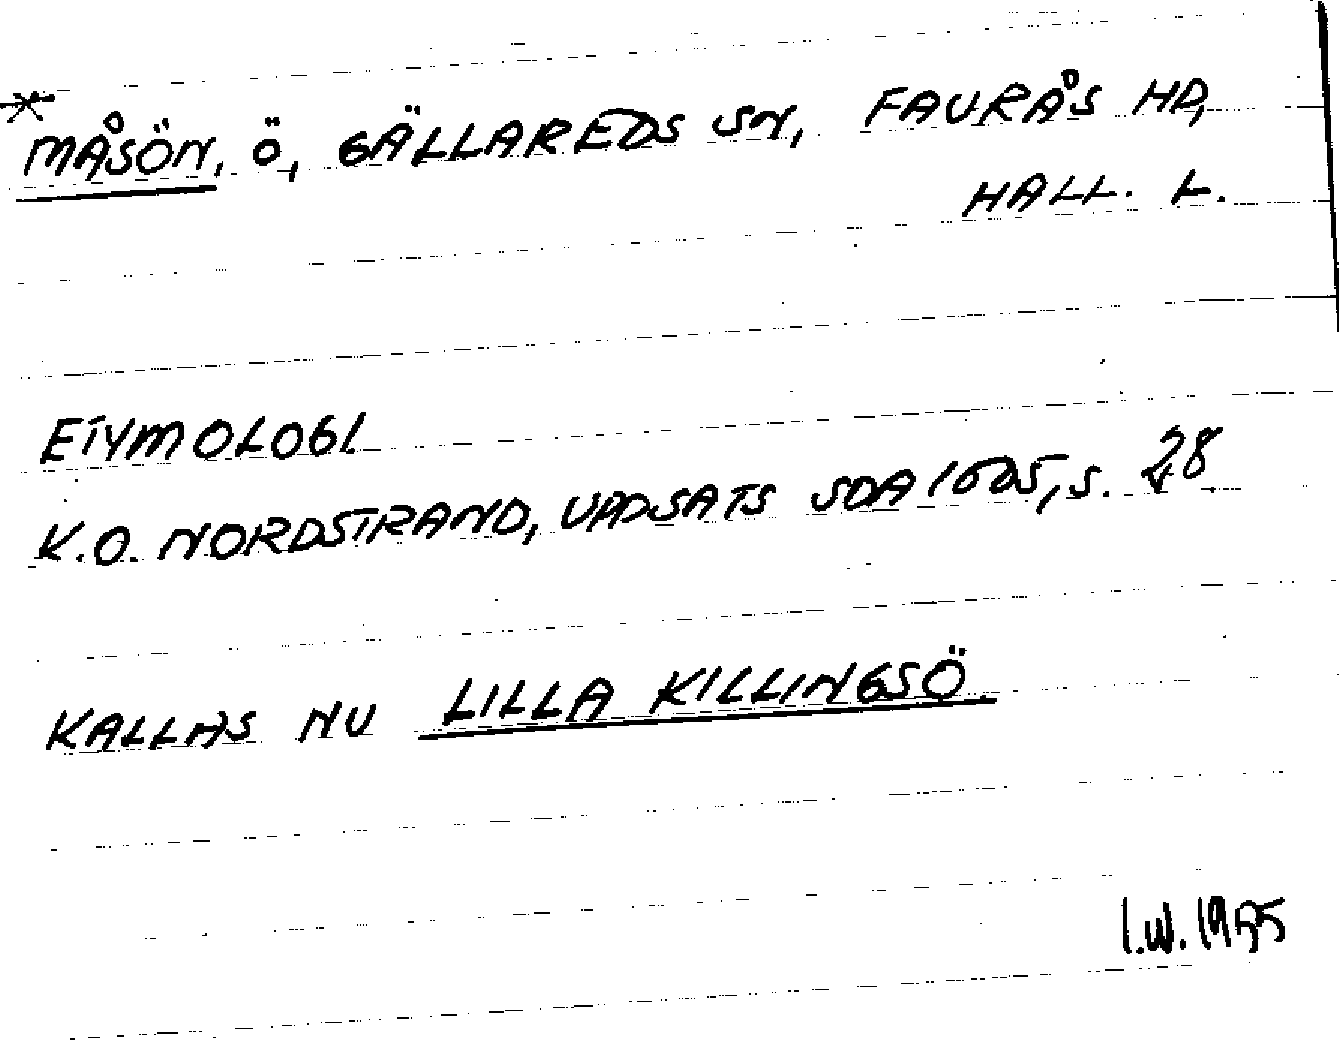 * MÅSÖN, Ö, GÄLLAREDS SN, FAURÅS HD,
HALL. L.
ETYMOLOGI.
K.O. NORDSTRAND, UPPSATS SOA s. 28
KALLAS NU LILLA KILLINGSÖ.
I.W. 1955